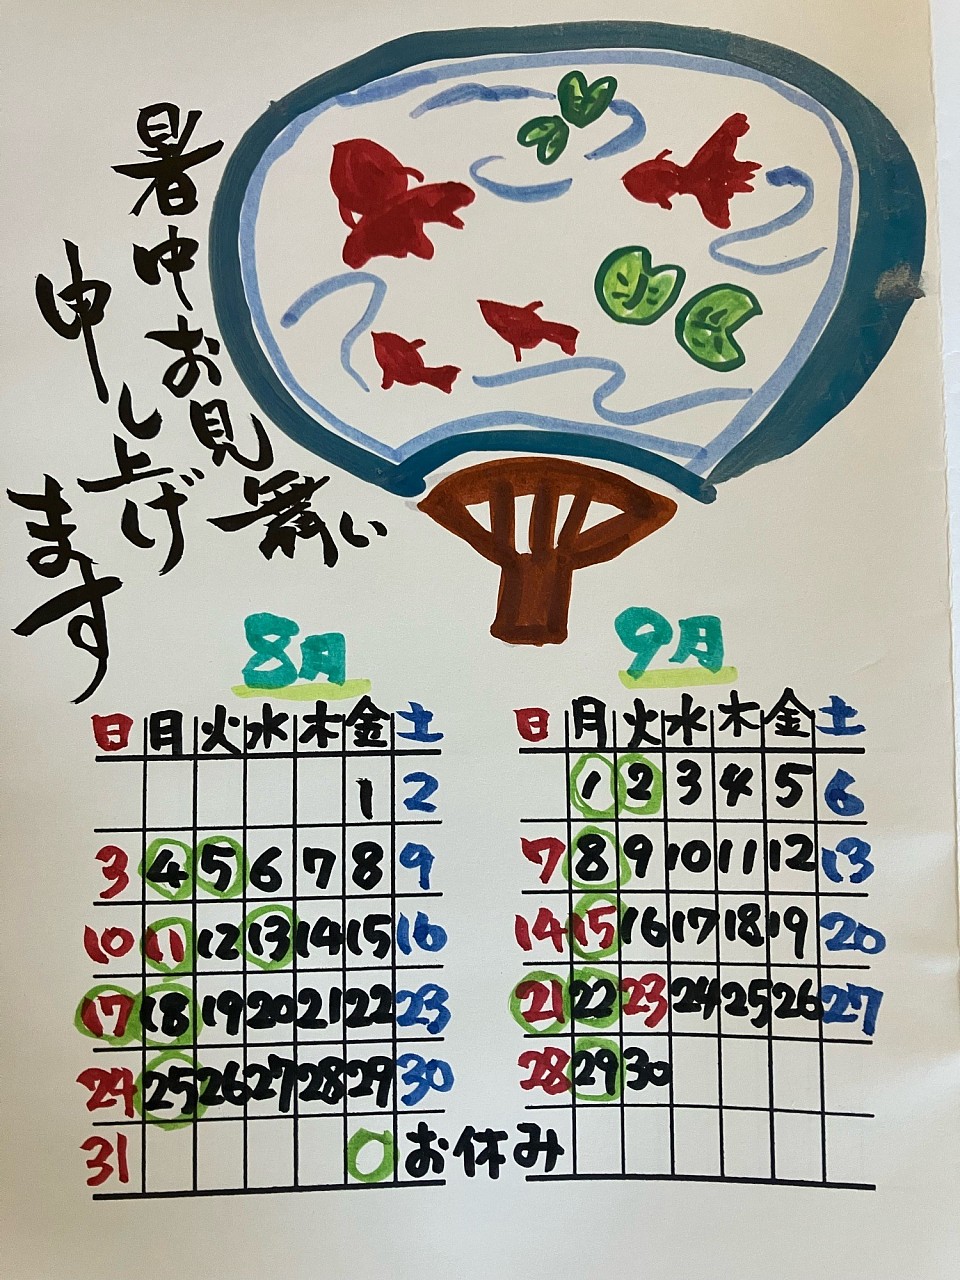 暑中お見舞い
申し上げ
ます
8月
日 月 火 水 木 金 土
1 2
3 4 5 6 7 8 9
10 11 12 13 14 15 16
17 18 19 20 21 22 23
24 25 26 27 28 29 30
31
お休み
9月
日 月 火 水 木 金 土
1 2 3 4 5 6
7 8 9 10 11 12 13
14 15 16 17 18 19 20
21 22 23 24 25 26 27
28 29 30